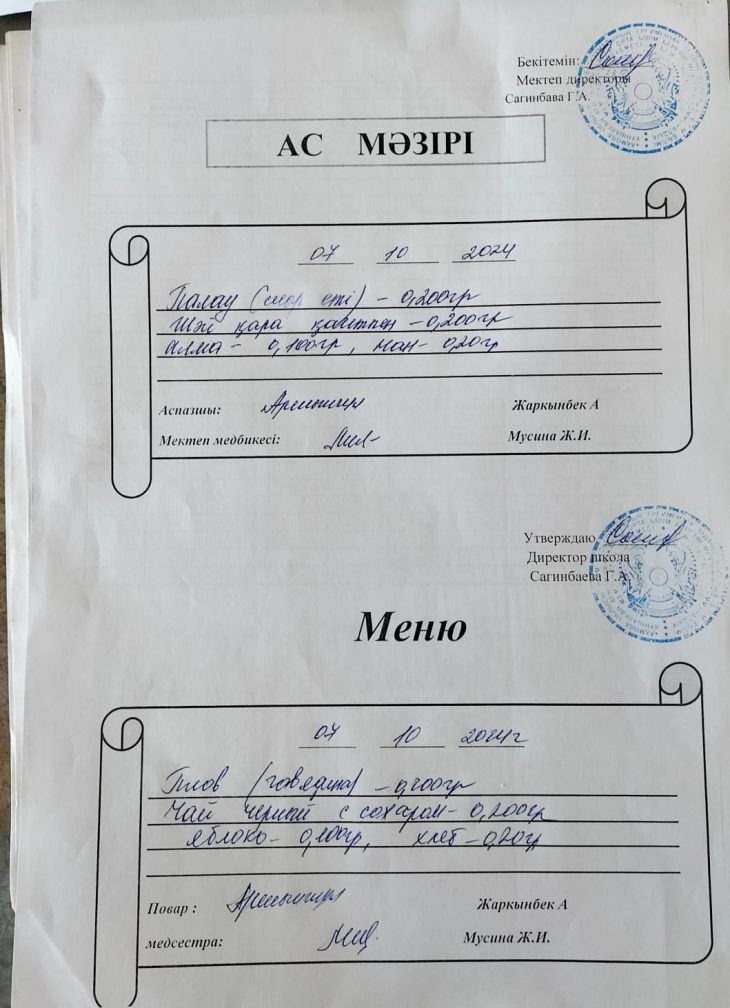 Бекітемін:
Мектеп директоры
Сагинбава Г.А.
АС МӘЗІРІ
07 10 2024
Палау (сиыр еті) - 0,200гр
Шәй қара қантпен - 0,200гр
Алма - 0,100гр, нан - 0,20гр
Аспазшы: Жаркынбек А
Мектеп медбикесі: Мусина Ж.И.
Утверждаю
Директор школа
Сагинбаева Г.А.
Меню
07 10 2024г
Плов (говядина) - 0,200гр
Чай черный с сохаром - 0,200гр
яблоко - 0,100гр, хлеб - 0,20гр
Повар : Жаркынбек А
медсестра: Мусина Ж.И.